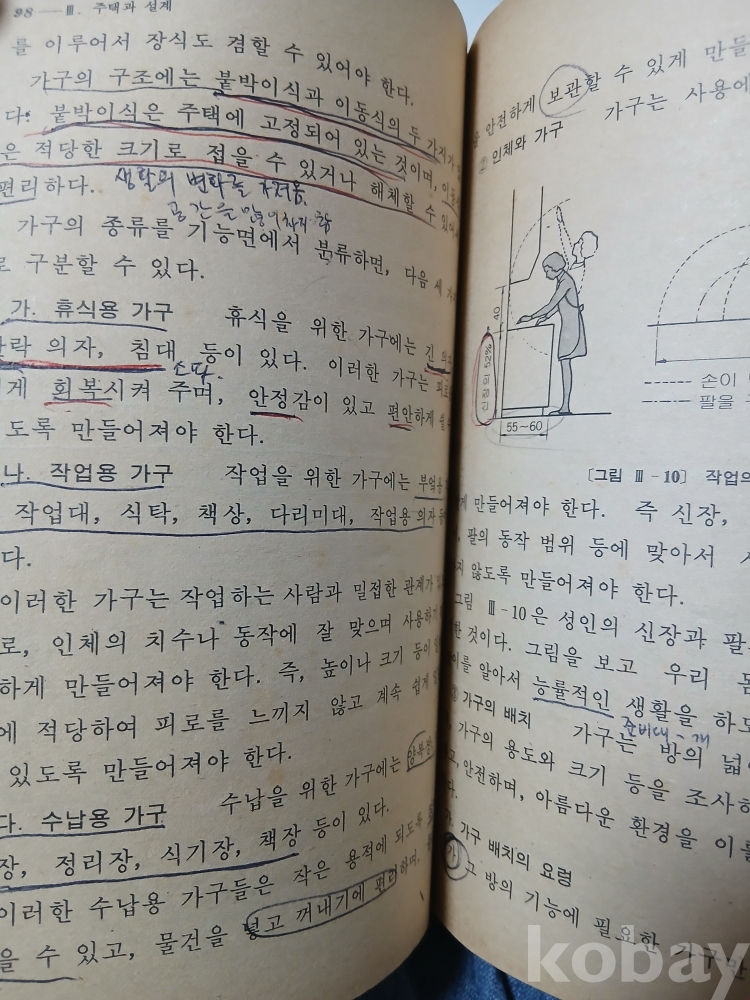 98 — Ⅲ. 주택과 설계
를 이루어서 장식도 겸할 수 있어야 한다.
가구의 구조에는 붙박이식과 이동식의 두 가지가
다. 붙박이식은 주택에 고정되어 있는 것이며, 이동
은 적당한 크기로 접을 수 있거나 해체할 수 있어
편리하다. 생활의 변화를 가져옴.
공간을
가구의 종류를 기능면에서 분류하면, 다음 세 가
로 구분할 수 있다.
가. 휴식용 가구 휴식을 위한 가구에는 긴 의
안락 의자, 침대 등이 있다. 이러한 가구는 피로
게 회복시켜 주며, 안정감이 있고 편안하게 쉴
도록 만들어져야 한다.
나. 작업용 가구 작업을 위한 가구에는 부엌용
작업대, 식탁, 책상, 다리미대, 작업용 의자 등
다.
이러한 가구는 작업하는 사람과 밀접한 관계가 있
로, 인체의 치수나 동작에 잘 맞으며 사용하기
하게 만들어져야 한다. 즉, 높이나 크기 등이
에 적당하여 피로를 느끼지 않고 계속 쉽게
있도록 만들어져야 한다.
다. 수납용 가구 수납을 위한 가구에는
장, 정리장, 식기장, 책장 등이 있다.
이러한 수납용 가구들은 작은 용적에 되도록
을 수 있고, 물건을 넣고 꺼내기에 편리하며,
을 안전하게 보관할 수 있게 만들
② 인체와 가구 가구는 사용에
40
신장의 52%
55~60
손이
팔을
[그림 Ⅲ-10] 작업의
게 만들어져야 한다. 즉 신장,
, 팔의 동작 범위 등에 맞아서
지 않도록 만들어져야 한다.
그림 Ⅲ-10은 성인의 신장과 팔
한 것이다. 그림을 보고 우리 몸
이를 알아서 능률적인 생활을 하도
③ 가구의 배치 가구는 방의 넓
준비대~개
, 가구의 용도와 크기 등을 조사하
고, 안전하며, 아름다운 환경을 이룰
다.
가. 가구 배치의 요령
가) 그 방의 기능에 필요한 가구만
kobay